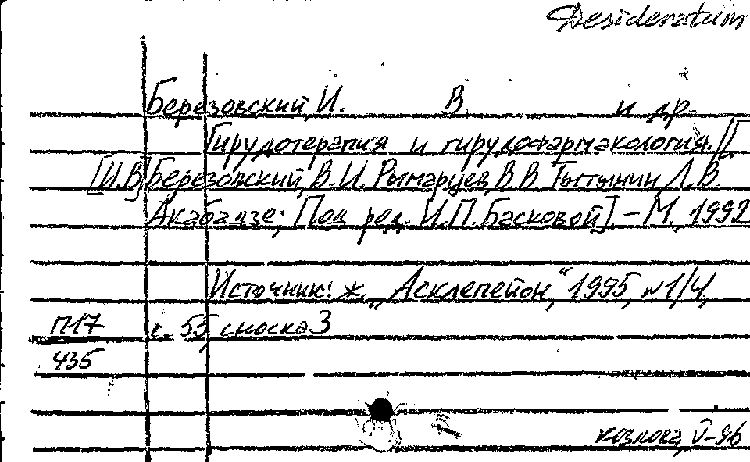 Desideratum
Березовский, И. В. и др.
Гирудотерапия и гирудофармакология. / [
[И.В] Березовский, В.И. Рымарцев, В.В. Тытынин Л.В.
Акабадзе; Под ред. И.П. Басковой]. - М, 1992
Источник: ж. „Асклепейон", 1995, №1/4,
П17 с. 55, сноска 3
435
козлова, V-96